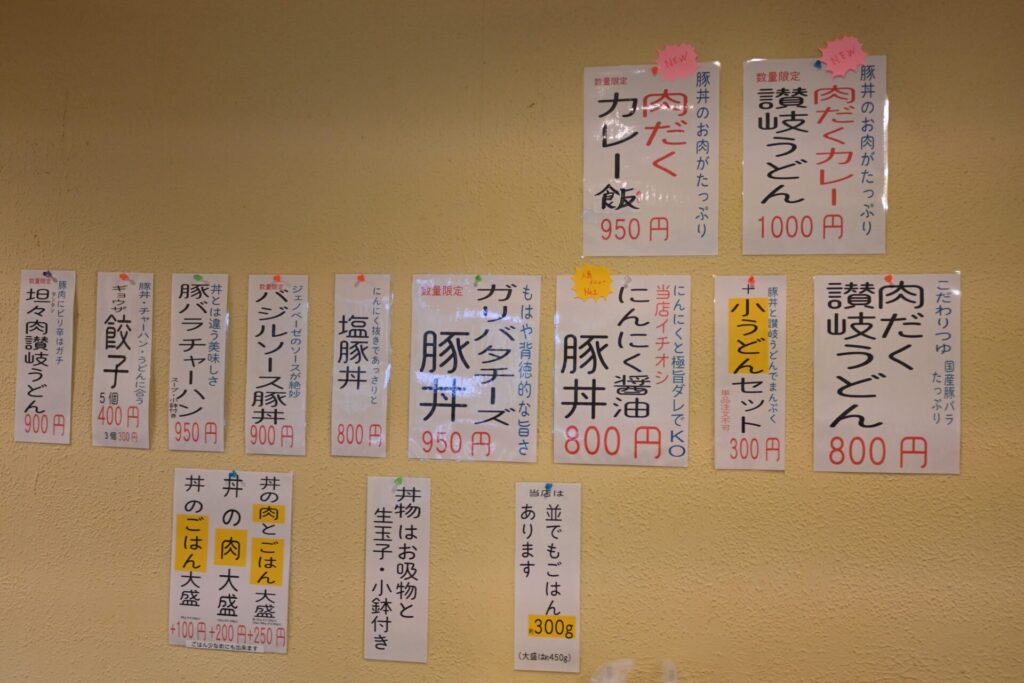 豚丼のお肉がたっぷり
NEW
肉だくカレー
讃岐うどん
数量限定
1000円
豚丼のお肉がたっぷり
NEW
肉だく
カレー飯
数量限定
950円
こだわりつゆ 国産豚バラ
たっぷり
肉だく
讃岐うどん
800円
豚丼と讃岐うどんでまんぷく
+小うどんセット
単品注文不可
300円
にんにくと極旨ダレでKO
当店イチオシ
にんにく醤油
豚丼
人気
No.1
800円
もはや背徳的な旨さ
ガリバタチーズ
豚丼
数量限定
950円
にんにく抜きであっさりと
塩豚丼
800円
ジェノベーゼのソースが絶妙
バジルソース豚丼
数量限定
900円
丼とは違う美味しさ
豚バラチャーハン
スープ・小鉢付き
950円
豚丼・チャーハン・うどんに合う
ギョウザ
餃子
5個
400円
3個300円
豚肉にピリ辛はガチ
タンタン
坦々肉讃岐うどん
数量限定
900円
当店は
並でもごはん
約300g
あります
(大盛は約450g)
丼物はお吸物と
生玉子・小鉢付き
丼の肉とごはん大盛
+250円
丼の肉大盛
+200円
丼のごはん大盛
+100円
ごはん少なめにも出来ます